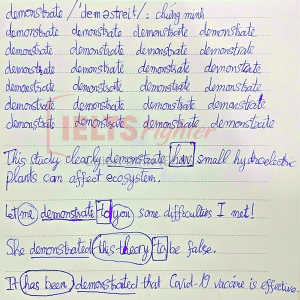 demonstrate /'demәstreit/: chứng minh
demonstrate demonstrate demonstrate demonstrate
demonstrate demonstrate demonstrate demonstrate
demonstrate demonstrate demonstrate demonstrate
demonstrate demonstrate demonstrate demonstrate
demonstrate demonstrate demonstrate demonstrate
demonstrate demonstrate demonstrate demonstrate
IELTS fighter
This study clearly demonstrate how small hydroelectric
plants can affect ecosystem.
Let me demonstrate to you some difficulties I met!
She demonstrated this theory to be false.
It has been demonstrated that Covid-19 vaccine is effective.